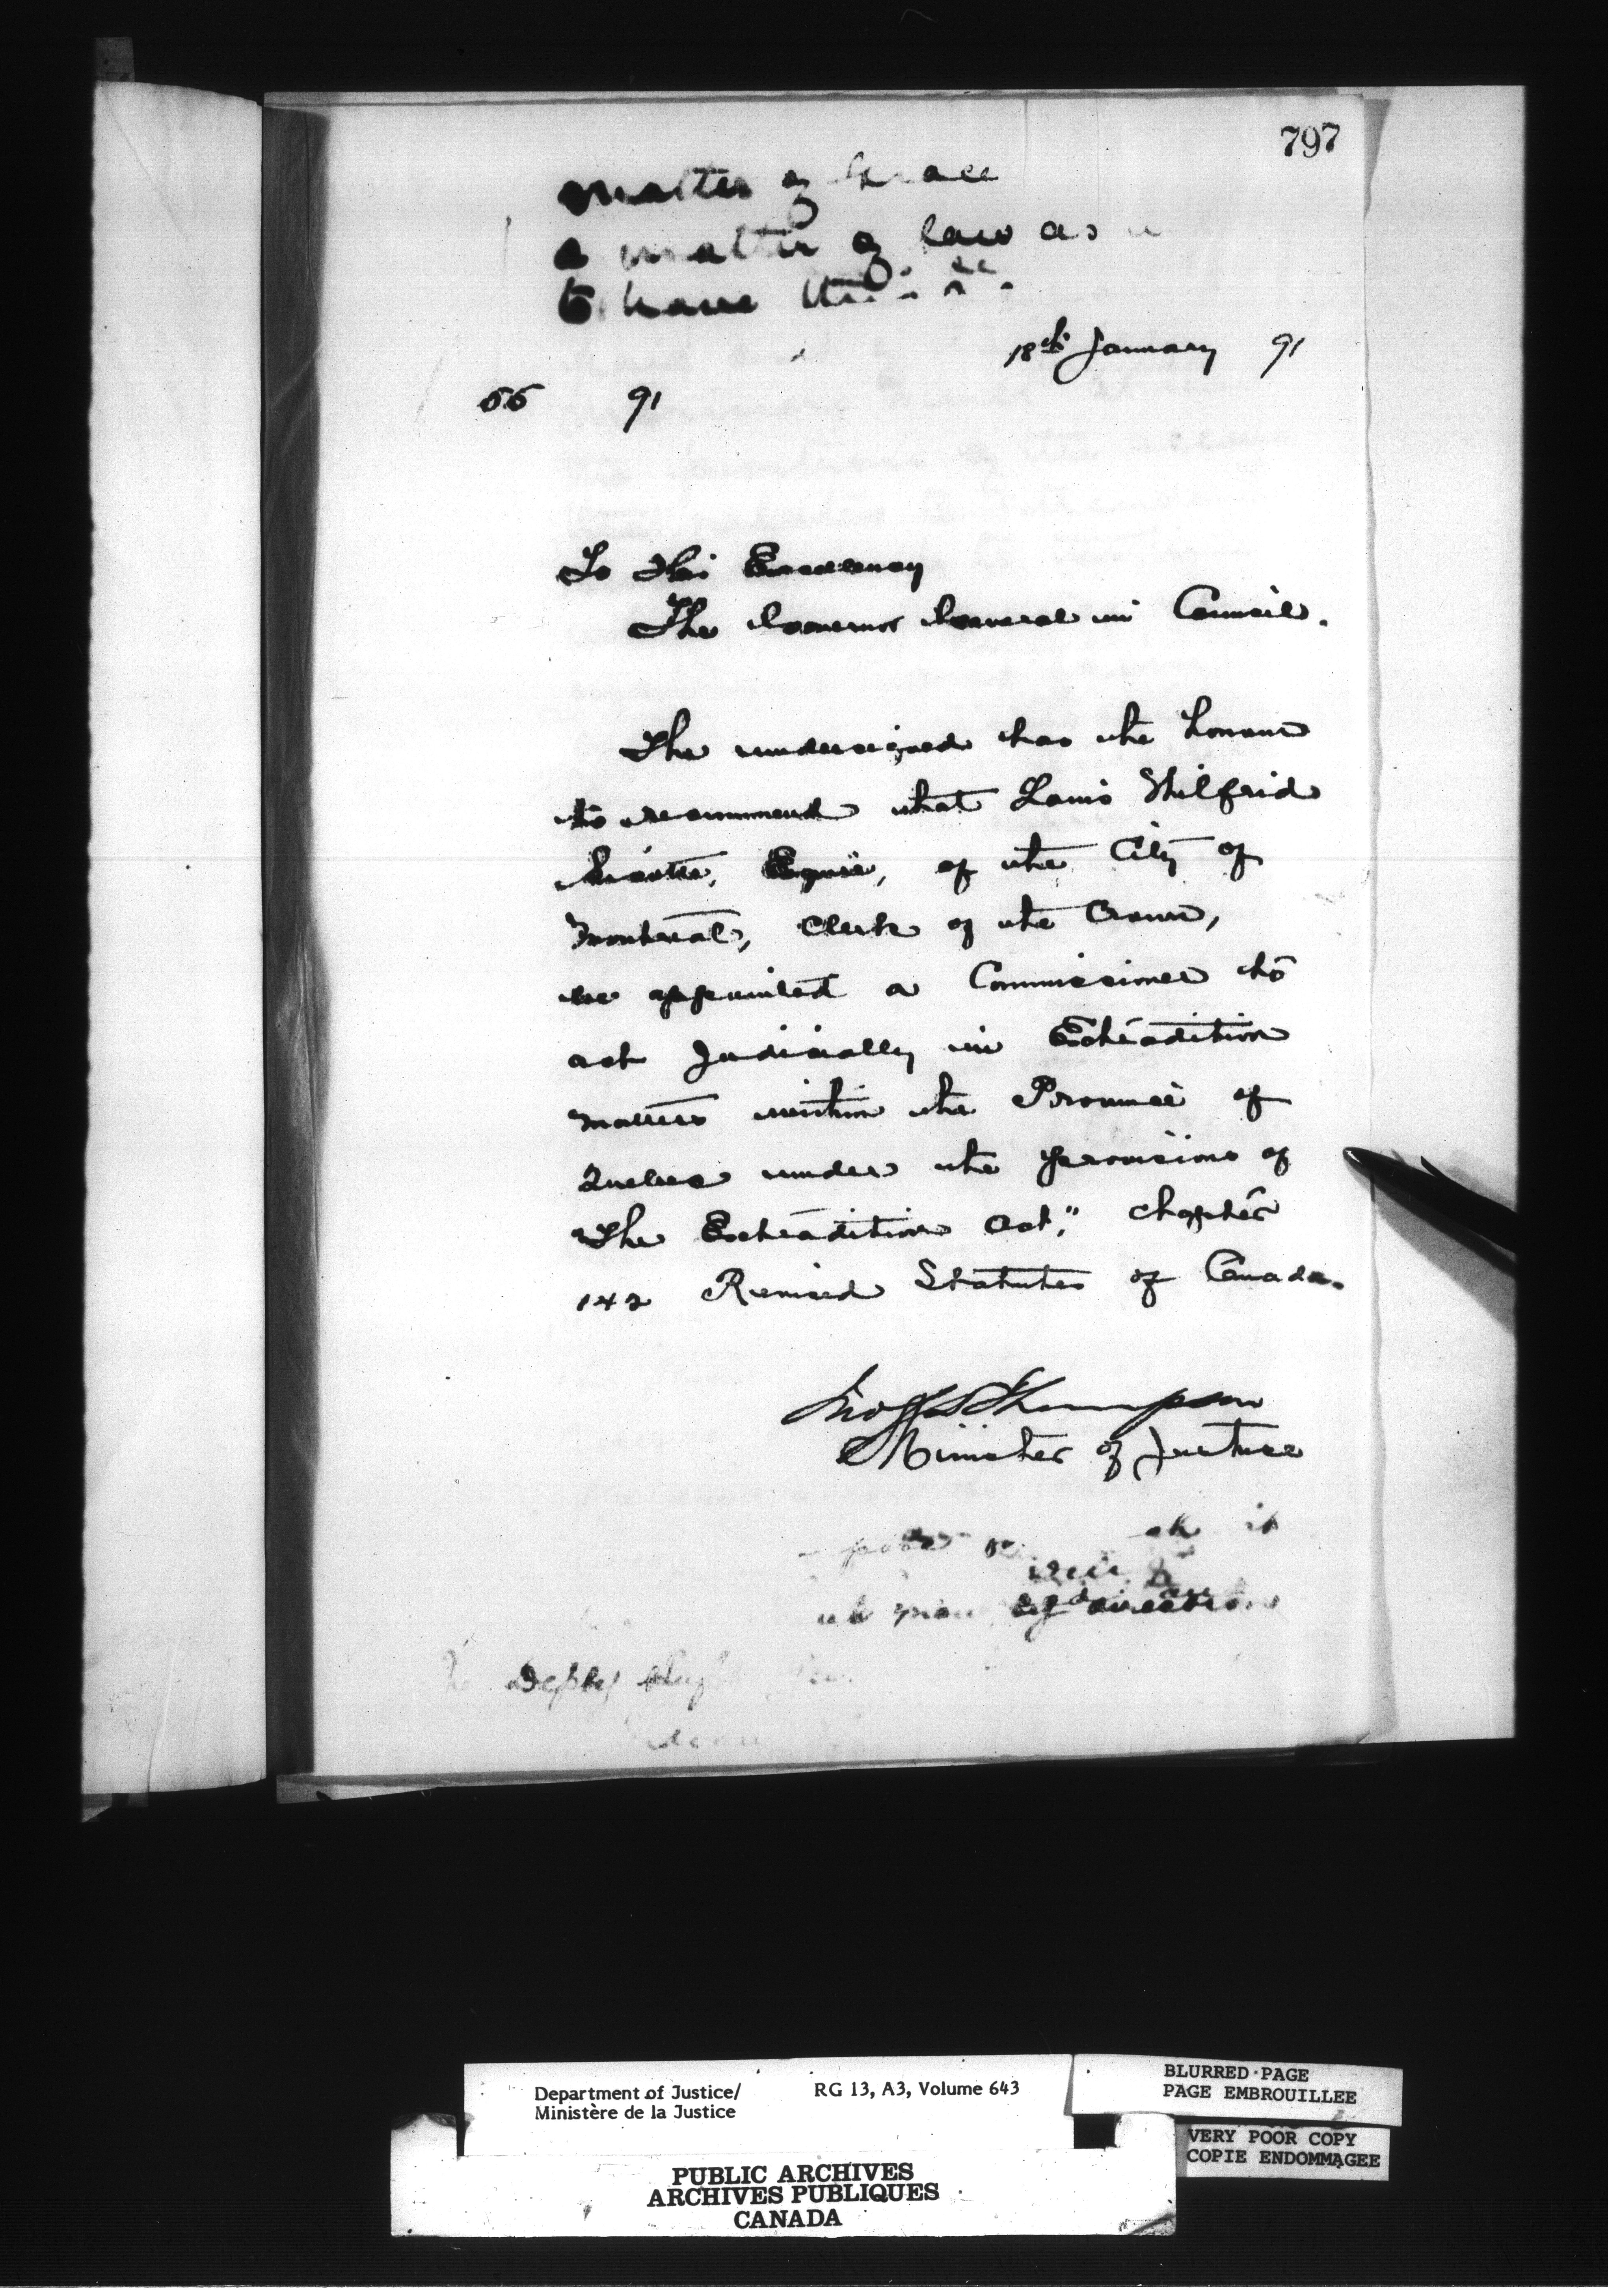 797
matter of Grace
a matter of law as
to have
18th January 91
55 91
To His Excellency
The Governor General in Council.
The undersigned has the honour
to recommend that Louis Wilfrid
Sicotte, Esquire, of the City of
Montreal, Clerk of the Crown,
be appointed a Commissioner to
act Judicially in Extradition
matters within the Province of
Quebec under the provisions of
"The Extradition Act," chapter
142 Revised Statutes of Canada.
Jno S D Thompson
Minister of Justice
it
direction
Department of Justice/
Ministère de la Justice
RG 13, A3, Volume 643
BLURRED PAGE
PAGE EMBROUILLEE
VERY POOR COPY
COPIE ENDOMMAGEE
PUBLIC ARCHIVES
ARCHIVES PUBLIQUES
CANADA